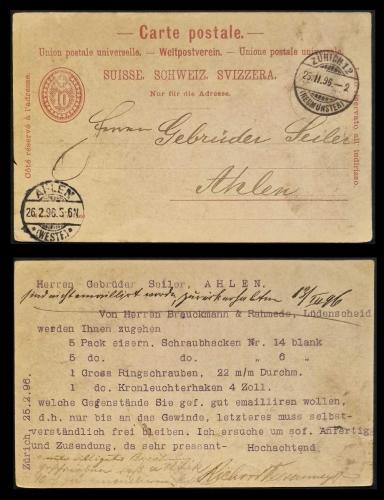 Carte postale.
Union postale universelle. — Weltpostverein. — Unione postale universale.
SUISSE. SCHWEIZ. SVIZZERA.
Nur für die Adresse.
Côté réservé à l'adresse.
Lato riservato all indirizzo.
10
ZÜRICH 12
25.II.96.–2
(NEUMÜNSTER)
Herren Gebrüder Seiler
Ahlen
AHLEN
26.2.96.5-6N.
(WESTF.)
Herren Gebrüder Seiler, AHLEN.
sind nicht emailliert worden, zurückerhalten 13/III 96
Von Herren Brauckmann & Rahmede, Lüdenscheid
werden Ihnen zugehen
5 Pack eisern. Schraubhacken Nr. 14 blank
5 do. do. " 6 "
1 Gross Ringschrauben, 22 m/m Durchm.
1 do. Kronleuchterhaken 4 Zoll.
welche Gegenstände Sie gef. gut emailliren wollen,
d.h. nur bis an das Gewinde, letzteres muss selbst-
verständlich frei bleiben. Ich ersuche um sof. Anfertig
und Zusendung, da sehr pressant- Hochachtend
Zürich, 25.2.96.